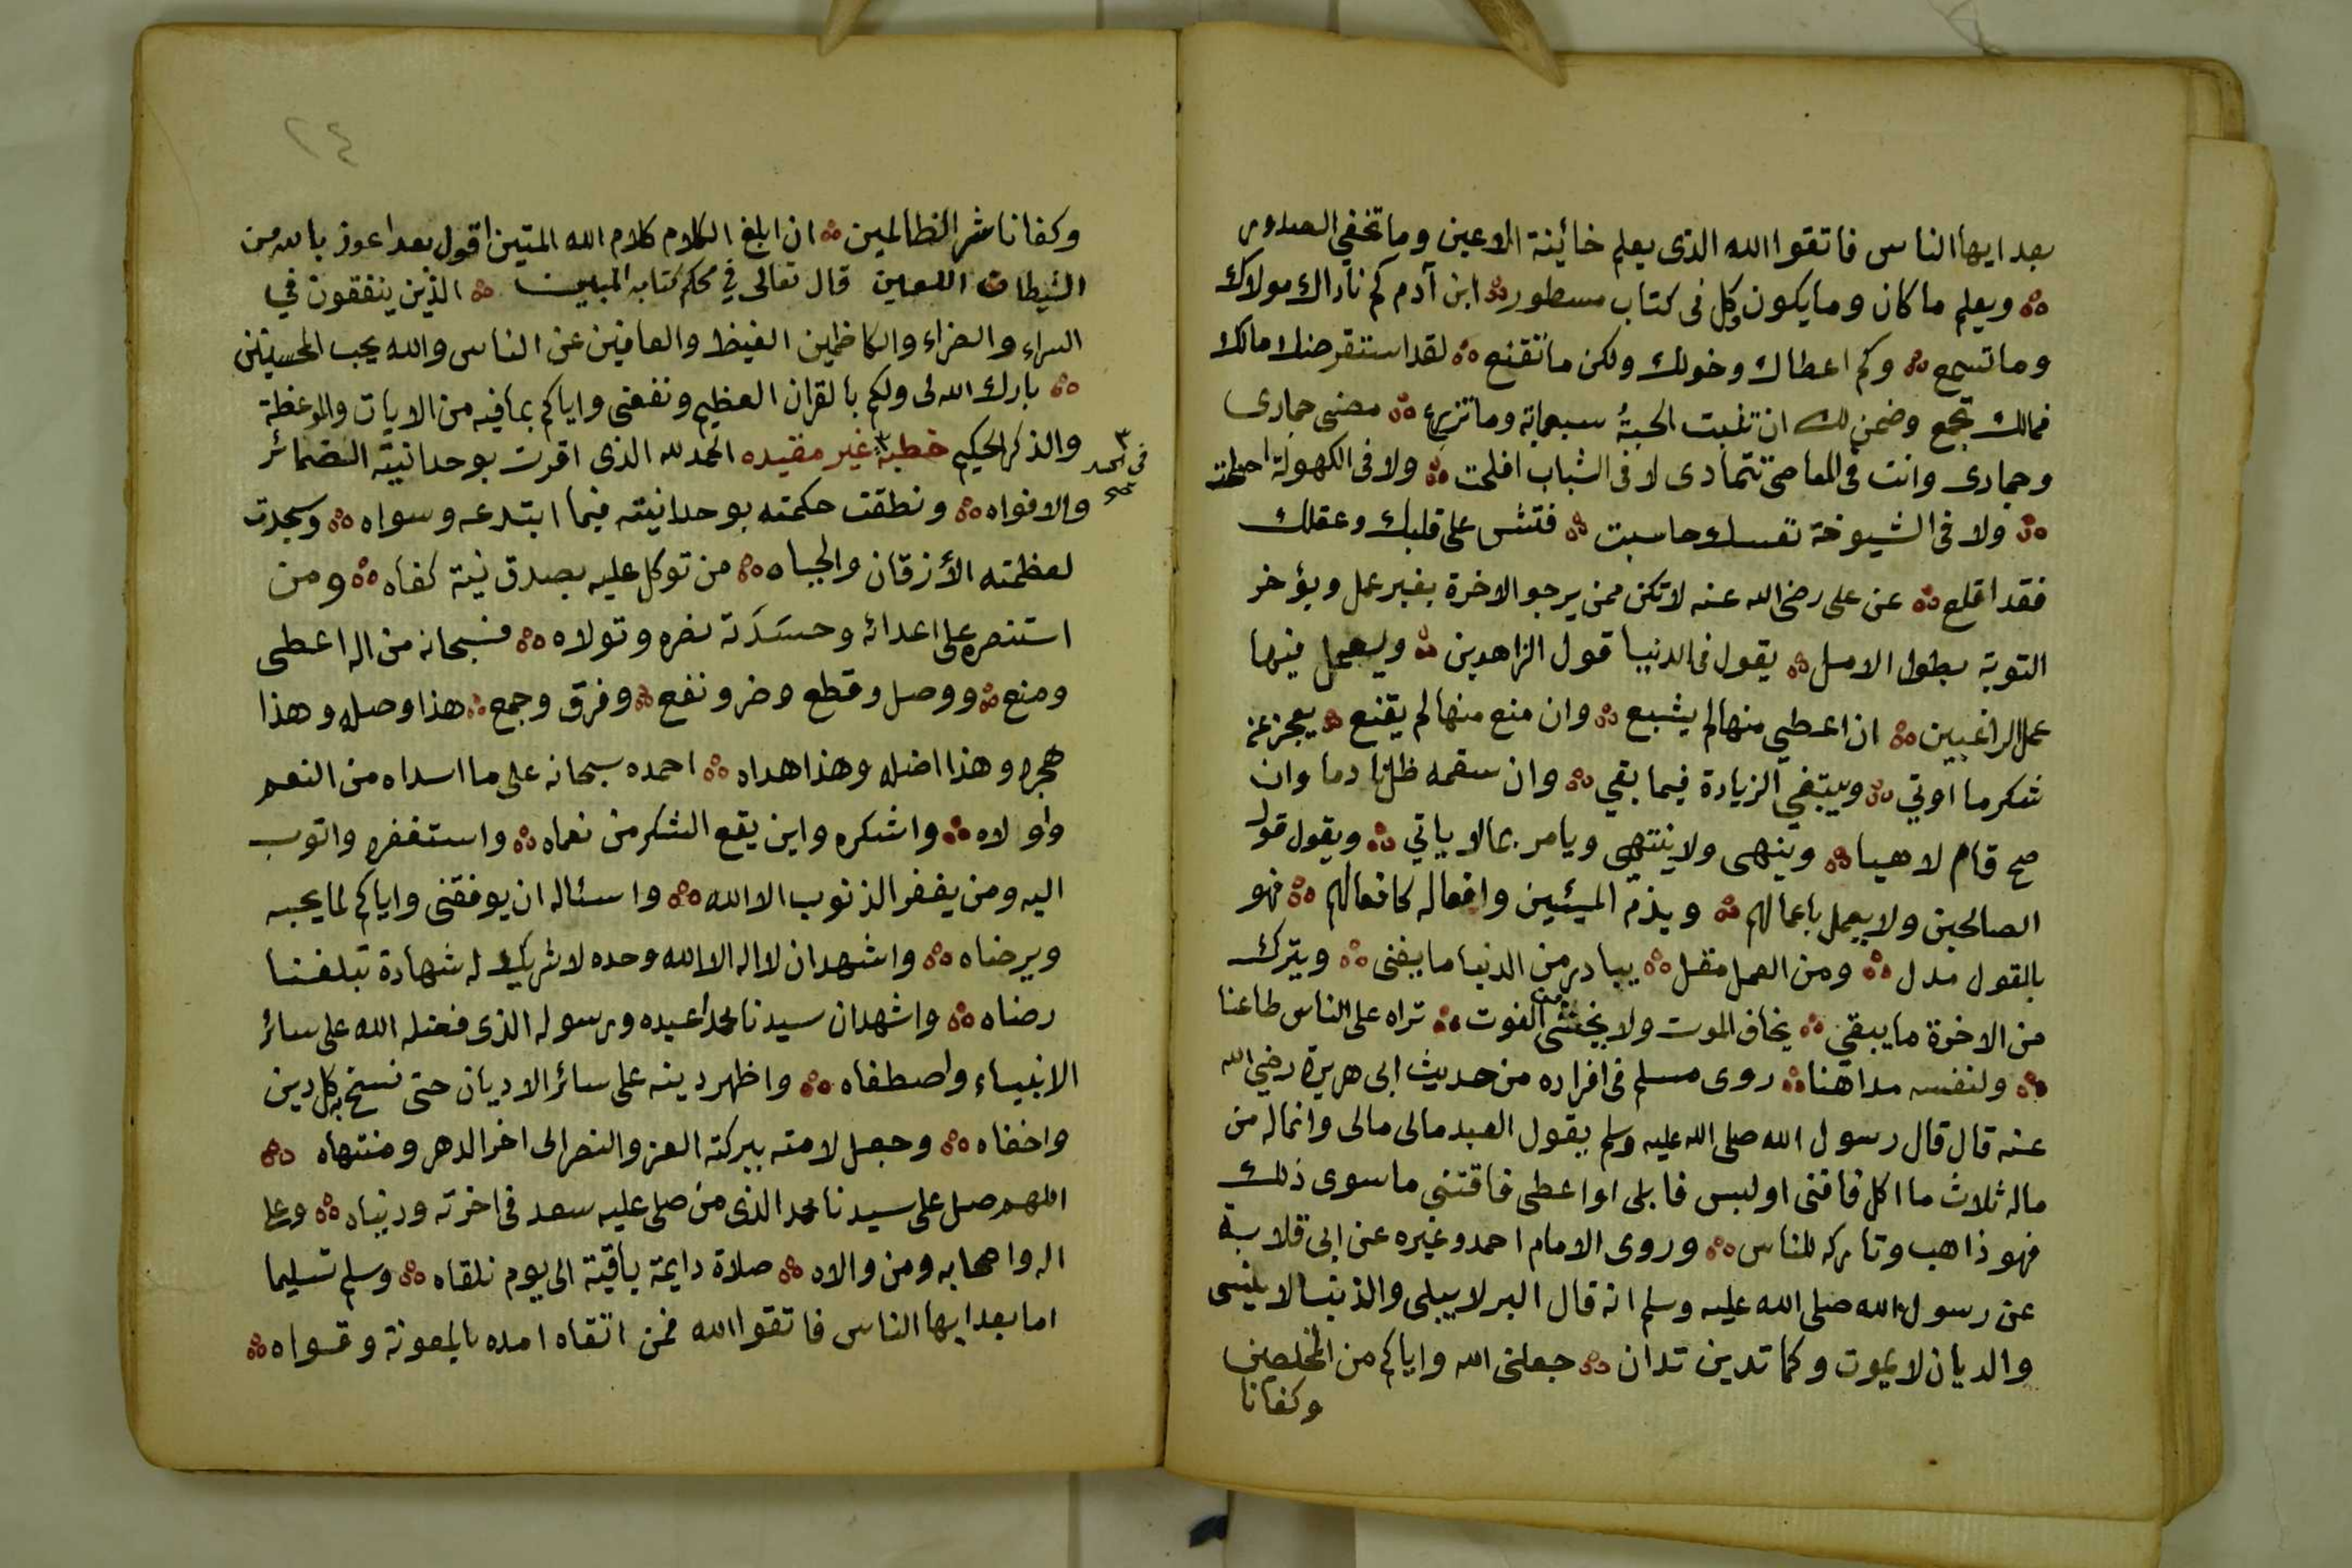 بعد ايها الناس فاتقوا الله الذى يعلم خائينة الاعين وما تخفي الصدور
ويعلم ما كان وما يكون وكل فى كتاب مسطور ابن آدم كم ناداك مولاك
وما تسمع وكم اعطاك وخولك ولكن ما تقنع لقد استقرضك مالك
فمالك تجمع وضمن لك ان تنبت الحبةُ سبعماية وما تزرع مضى جمادى
وجمادى وانت فى المعاصى تتمادى لا فى الشباب افلحت ولا فى الكهولة اصلحت
ولا فى الشيوخة نفسك حاسبت فتش على قلبك وعقلك
فقد اقلع عن على رضى الله عنه لا تكن ممن يرجو الاخرة بغير عمل ويؤخر
التوبة بطول الامل يقول فى الدنيا قول الزاهدين ويعمل فيها
عمل الراغبين ان اعطي منها لم يشبع وان منع منها لم يقنع يعجز عن
شكر ما اوتي ويبتغي الزيادة فيما بقي وان سقمه ظل نادما وان
صح قام لاهيا وينهى ولا ينتهى ويامر بمالا ياتي ويقول قول
الصالحين ولا يعمل باعمالهم ويذم المسيئين وافعاله كافعالهم فهو
بالقول مدل ومن العمل مقل يبادر من الدنيا ما يفنى ويترك
من الاخرة ما يبقي يخاف الموت ولا يخشى من الفوت تراه على الناس طاعنا
ولنفسه مداهنا روى مسلم فى افراده من حديث ابى هريرة رضي الله
عنه قال قال رسول الله صلى الله عليه وسلم يقول العبد مالى مالى وانماله من
ماله ثلاث ما اكل فافنى او لبس فابلى او اعطى فاقتنى ما سوى ذلك
فهو ذاهب وتاركه للناس وروى الامام احمد وغيره عن ابى قلابة
عن رسول الله صلى الله عليه وسلم انه قال البر لا يبلى والذنب لا ينسى
والديان لا يموت وكما تدين تدان جعلنى الله واياكم من المخلصين
وكفانا
٢٤
وكفانا شر الظالمين ان ابلغ الكلام كلام الله المتين اقول بعد اعوذ بالله من
الشيطان اللعين قال تعالى في محكم كتابه المبين الذين ينفقون في
السراء والضراء والكاظمين الغيظ والعافين عن الناس والله يحب المحسنين
بارك الله لى ولكم بالقران العظيم ونفعنى واياكم بما فيه من الايات والموعظة
والذكر الحكيم خطبة غير مقيده الحمد لله الذى اقرت بوحدانيته الضمائر
والافواه ونطقت حكمته بوحدانيته فيما ابتدعه وسواه وسجدت
لعظمته الأزقان والجباه من توكل عليه بصدق نية كفاه ومن
استنصره على اعدائه وحسَدَته نصره وتولاه فسبحانه من اله اعطى
ومنع ووصل وقطع وضر ونفع وفرق وجمع هذا وصله وهذا
هجره وهذا اضله وهذا هداه احمده سبحانه على ما اسداه من النعم
واولاه واشكره واين يقع الشكر من نعماه واستغفره واتوب
اليه ومن يغفر الذنوب الا الله واسئاله ان يوفقنى واياكم لما يحبه
ويرضاه واشهد ان لا اله الا الله وحده لا شريك له شهادة تبلغنا
رضاه واشهد ان سيدنا محمدا عبده ورسوله الذى فضله الله على سائر
الانبياء واصطفاه واظهر دينه على سائر الاديان حتى نسخ به كل دين
واخفاه وجعل لامته ببركته العز والنصر الى اخر الدهر ومنتهاه
اللهم صل على سيدنا محمد الذى من صلى عليه سعد فى اخرته ودنياه وعلى
اله واصحابه ومن والاه صلاة دايمة باقية الى يوم نلقاه وسلم تسليما
اما بعد ايها الناس فاتقوا الله فمن اتقاه امده بالمعونة وقواه